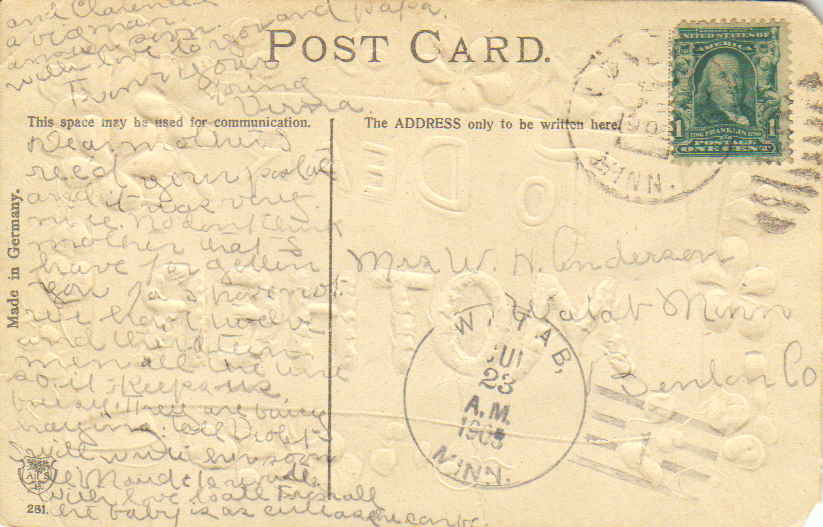 and Clarence
and papa.
with love to you
From your
loving
Verna.
POST CARD.
UNITED STATES OF
AMERICA
1 1
POSTAGE
ONE CENT
MINN.
This space may be used for communication.
The ADDRESS only to be written here.
Made in Germany.
Dear mother I
recd your postal
and it was very
nice. No dont think
mother that I
have forgotten
you for I have not.
we have twelve
and thirteen
men all the time
so it keeps us
busy. They are busy
haying. tell Violet I
will write her soon
with love to all from all
the baby is as cute as he can be.
TO DEAR
MOTHER
Mrs W. H. Anderson
Watab Minn
Benton Co
WATAB,
JUL
23
A.M.
MINN.
A S
281.